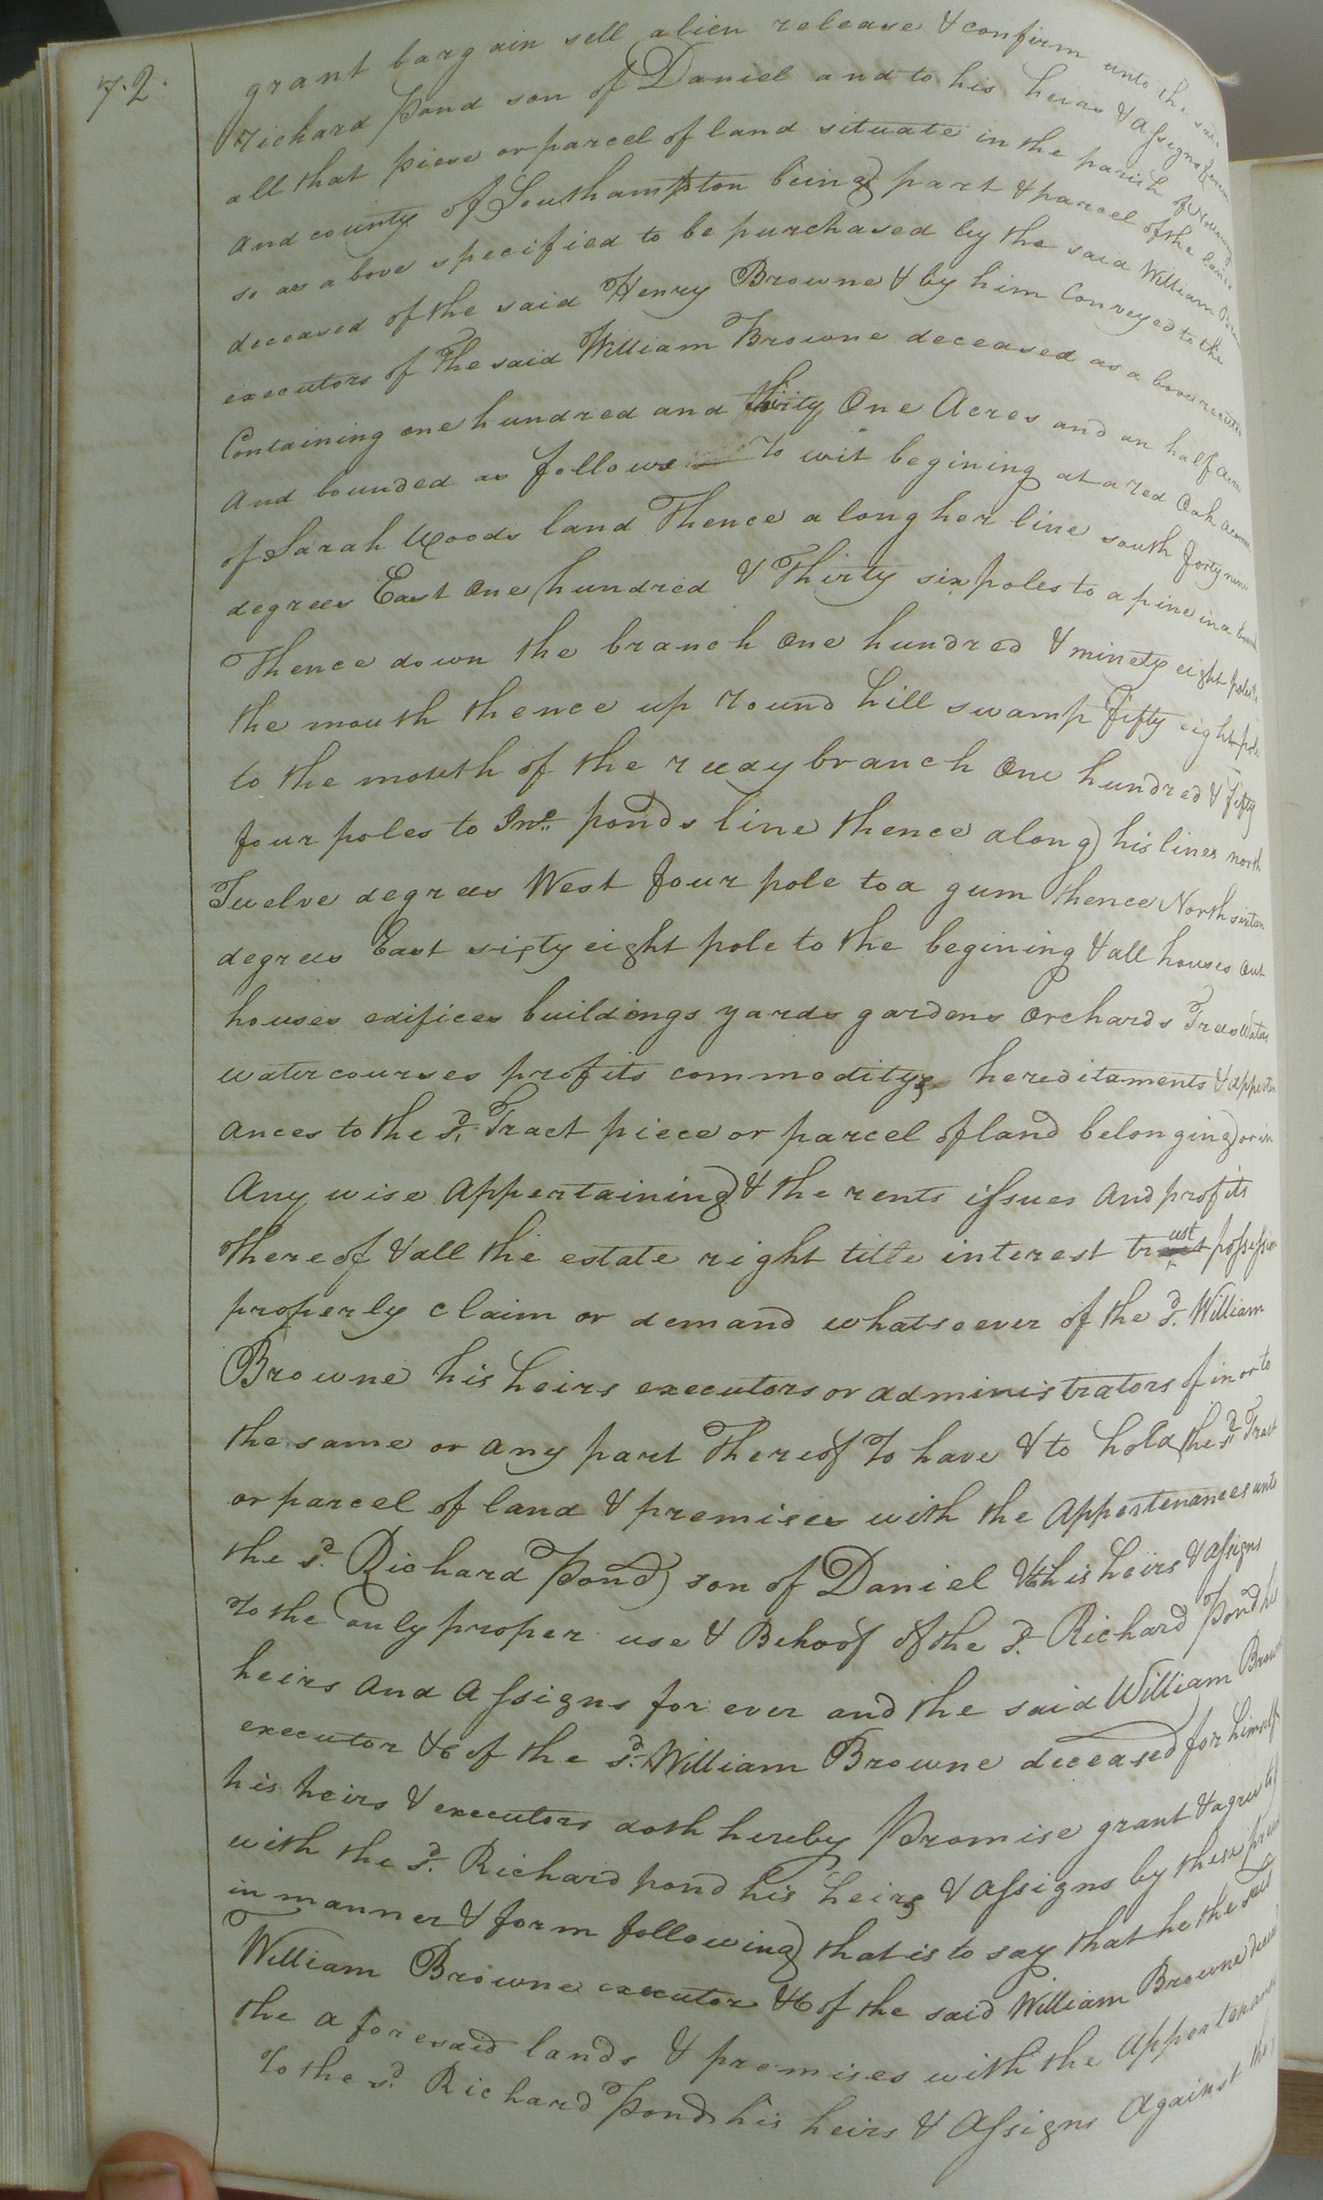 72.
grant bargain sell alien release & confirm unto the said
Richard Pond son of Daniel and to his heirs & Assigns forever
all that piece or parcel of land situate in the parish of Nottoway
and county of Southampton being part & parcel of the lands
so as above specified to be purchased by the said William Browne
deceased of the said Henry Browne & by him Conveyed to the
executors of the said William Browne deceased as above recited
Containing one hundred and thirty One Acres and an half Acre
And bounded as follows To wit begining at a red Oak corner
of Sarah Woods land Thence along her line south forty nine
degrees East One hundred & Thirty six poles to a pine in a branch
Thence down the branch One hundred & ninety eight poles to
the mouth thence up round hill swamp fifty eight pole
to the mouth of the reedy branch One hundred & fifty
four poles to Jno. ponds line thence along his lines north
Twelve degrees West four pole to a gum thence North sixteen
degrees East sixty eight pole to the begining & all houses Out
houses edifices buildings yards gardens Orchards Trees Waters
water courses profits commoditys hereditaments & apperten
ances to the sd. Tract piece or parcel of land belonging or in
Any wise Appertaining & the rents issues And profits
thereof & all the estate right title interest trust possession
property claim or demand whatsoever of the sd. William
Browne his heirs executors or administrators of in or to
the same or any part Thereof To have & to hold the sd. Tract
or parcel of land & premises with the Appertenances unto
the sd. Richard Pond son of Daniel & to his heirs & assigns
To the only proper use & Behoof of the sd. Richard Pond his
heirs And Assigns for ever and the said William Browne
executor &c of the sd. William Browne deceased for himself
his heirs & executors doth hereby Promise grant & agree to &
with the sd. Richard pond his heirs & assigns by these presents
in manner & form following that is to say that he the said
William Browne executor &c of the said William Browne deceased
the aforesaid lands & premises with the Appertenances
To the sd. Richard Pond his heirs & Assigns Against the